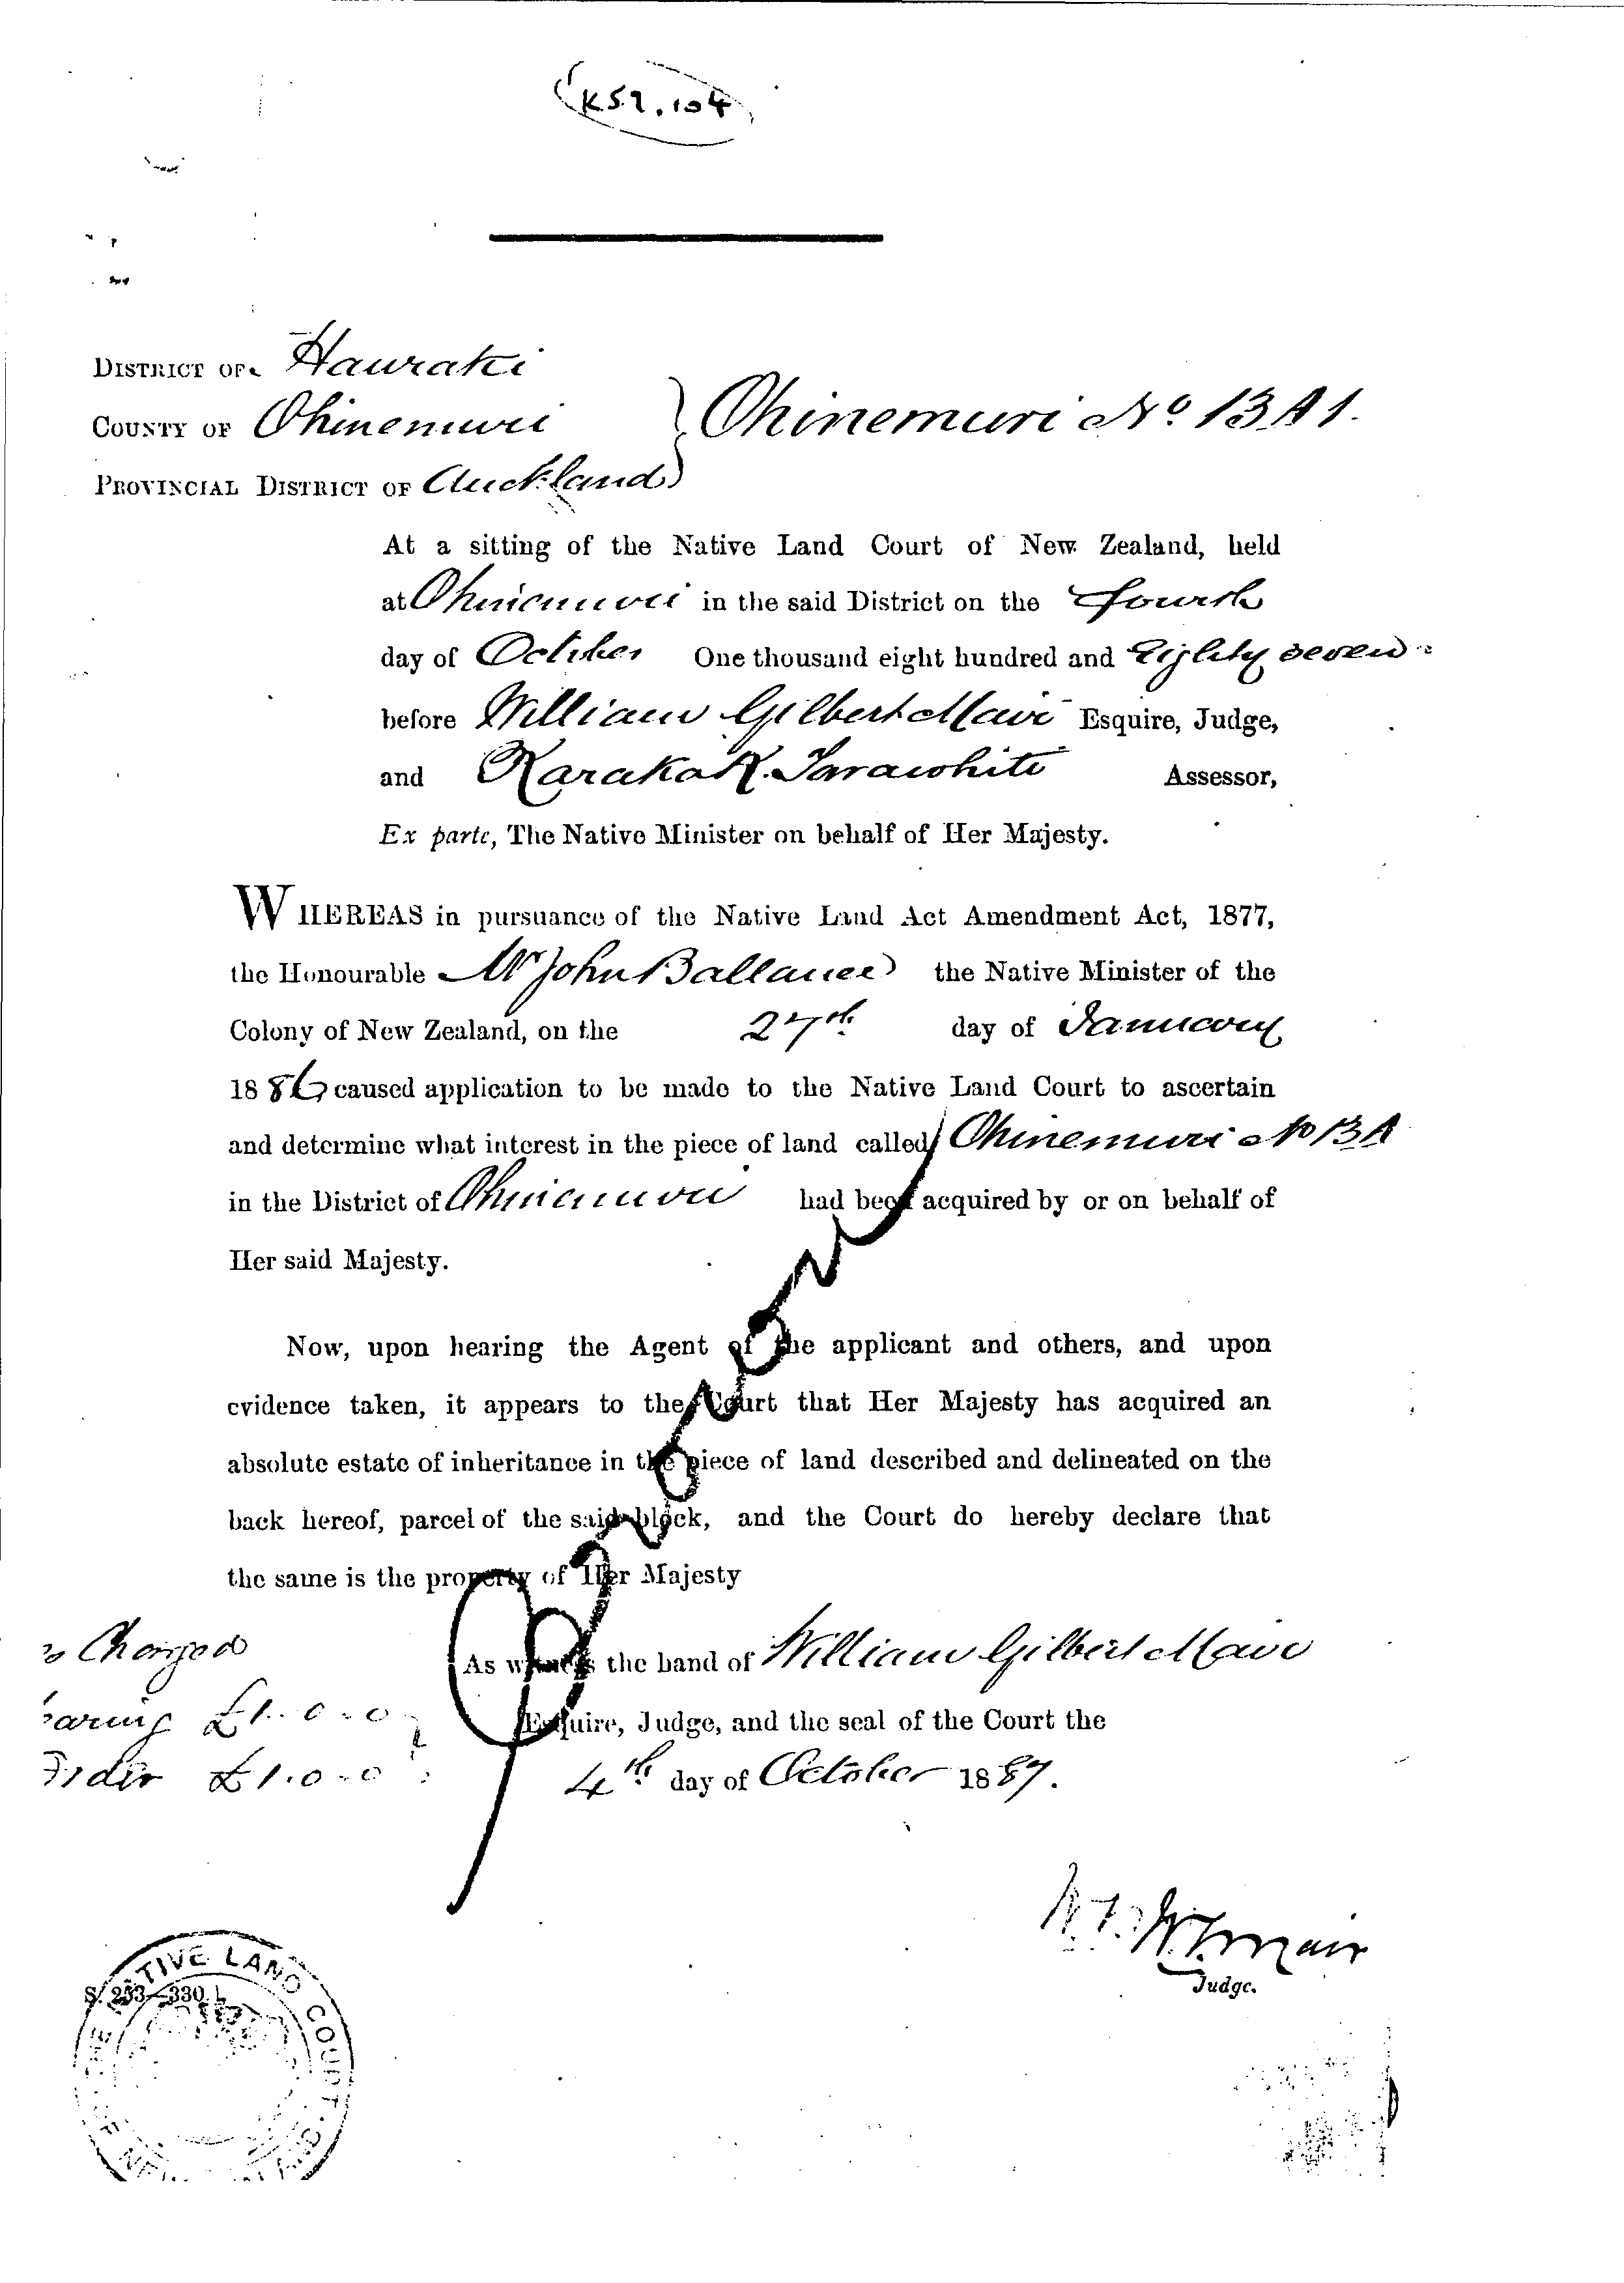 K52.104
DISTRICT OF Hauraki
COUNTY OF Ohinemuri
Ohinemuri No 13A1.
PROVINCIAL DISTRICT OF Auckland
At a sitting of the Native Land Court of New Zealand, held
at Ohinemuri in the said District on the Fourth
day of October One thousand eight hundred and Eighty seven
before William Gilbert Mair Esquire, Judge,
and Karaka Tarawhiti Assessor,
Ex parte, The Native Minister on behalf of Her Majesty.
WHEREAS in pursuance of the Native Land Act Amendment Act, 1877,
the Honourable Mr John Ballance the Native Minister of the
Colony of New Zealand, on the 27th day of January
1886 caused application to be made to the Native Land Court to ascertain
and determine what interest in the piece of land called Ohinemuri No 13A
in the District of Ohinemuri had been acquired by or on behalf of
Her said Majesty.
Now, upon hearing the Agent of the applicant and others, and upon
evidence taken, it appears to the Court that Her Majesty has acquired an
absolute estate of inheritance in the piece of land described and delineated on the
back hereof, parcel of the said block, and the Court do hereby declare that
the same is the property of Her Majesty
Charged
As witness the hand of William Gilbert Mair
aring £1.0.0
Esquire, Judge, and the seal of the Court the
rder £1.0.0
4th day of October 1887.
Mair
Judge.
NATIVE LAND COURT
S. 253—330.